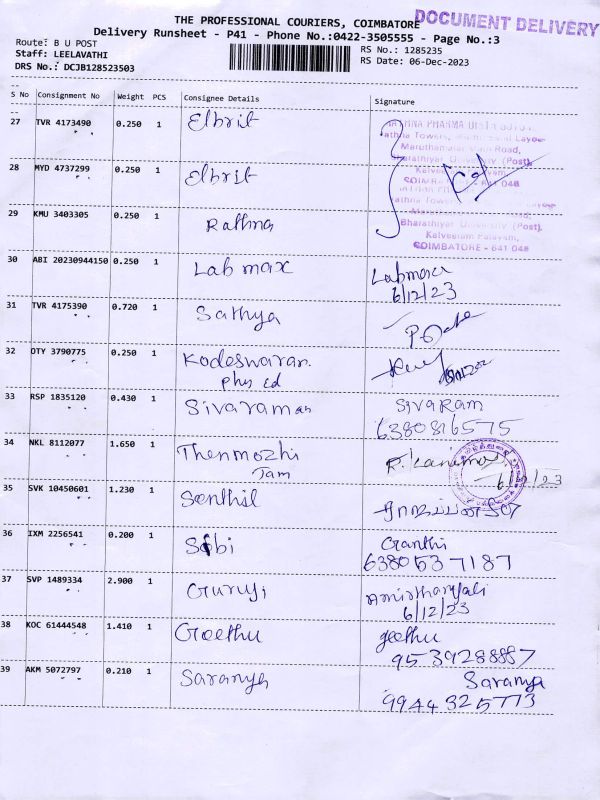 THE PROFESSIONAL COURIERS, COIMBATORE
DOCUMENT DELIVERY
Delivery Runsheet - P41 - Phone No.:0422-3505555 - Page No.:3
Route: B U POST
Staff: LEELAVATHI
DRS No.: DCJB128523503
RS No.: 1285235
RS Date: 06-Dec-2023
S No Consignment No Weight PCS Consignee Details Signature
27 TVR 4173490 0.250 1 Elbrit
28 MYD 4737299 0.250 1 Elbrit
29 KMU 3403305 0.250 1 Rathna
Bharathiyar University (Post),
Kalveeram Palayam,
COIMBATORE - 641 046
30 ABI 20230944150 0.250 1 Lab max Labmax
6/12/23
31 TVR 4175390 0.720 1 Sathya
32 OTY 3790775 0.250 1 Kodeswaran.
Phy Ed
33 RSP 1835120 0.430 1 Sivaraman SIVARAM
6380816575
34 NKL 8112077 1.650 1 Thenmozhi
Tam
6/12/23
35 SVK 10450601 1.230 1 Senthil
36 IXM 2256541 0.200 1 Sibi Ganthi
6380537187
37 SVP 1489334 2.900 1 Guruji Amirthanjali
6/12/23
38 KOC 61444548 1.410 1 Geethu geethu
9539288887
39 AKM 5072797 0.210 1 Saranya Saranya
9944325773